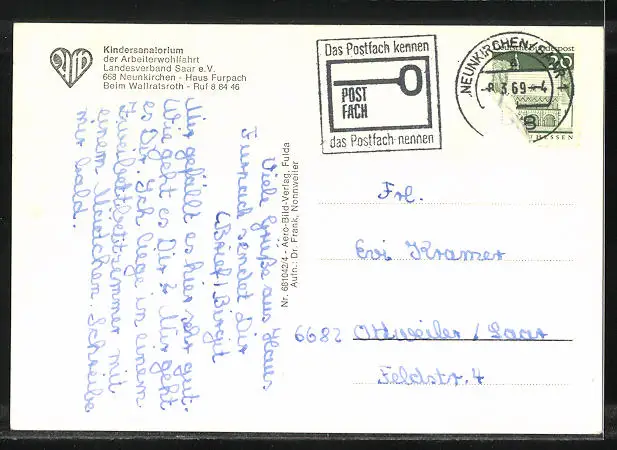 Kindersanatorium
der Arbeiterwohlfahrt
Landesverband Saar e.V.
668 Neunkirchen - Haus Furpach
Beim Wallratsroth - Ruf 8 64 46
Das Postfach kennen
POST
FACH
das Postfach nennen
NEUNKIRCHEN, SAAR 1
-8.3.69-4
Deutsche Bundespost
20
HESSEN
Viele Grüße aus Haus
Furpach sendet Dir
(Brief) Birgit
Mir gefällt es hier sehr gut.
Wie geht es Dir? Mir geht
es Ich liege in einem
Zweibettzimmer mit
einem Mädchen. Schreibe
mir bald.
Nr. 681042/4 - Aero-Bild-Verlag, Fulda
Aufn.: Dr. Frank, Nonnweiler
Frl.
Evi Kramer
6682 Ottweiler / Saar
Feldstr. 4